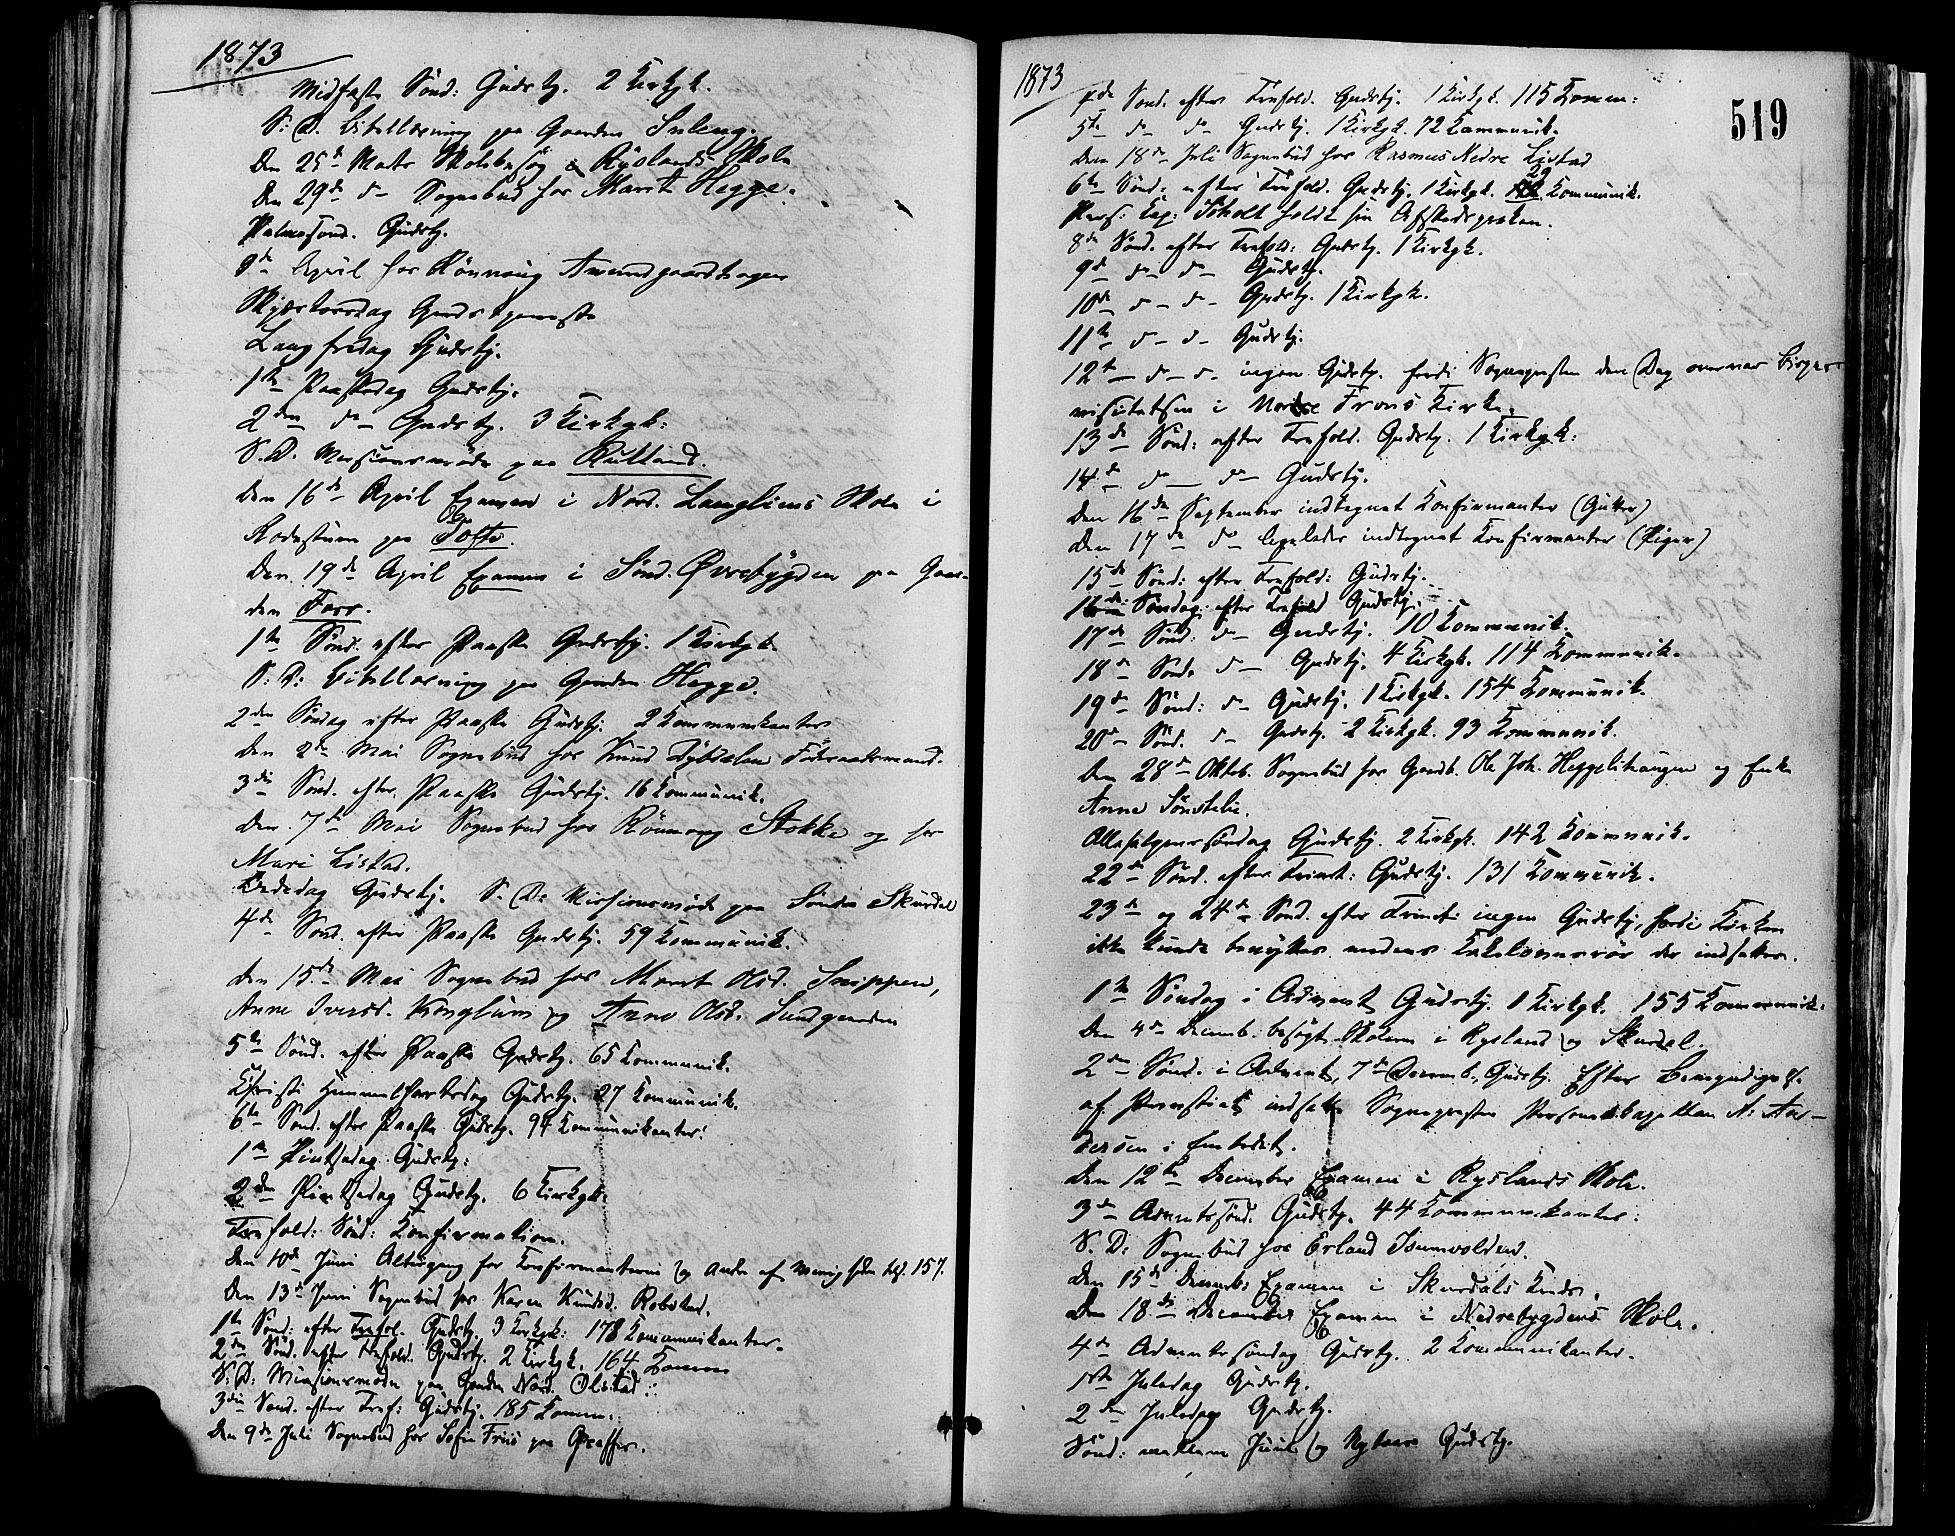 1873
Midfaste Sønd: Gudstj. 2 Kirkgk.
S: D. Bibellæsning paa Gaarden Suleng.
Den 25de Marts Skolebesøg i Ryslands Skole
Den 29de d– Sognebud hos Marit Hegge.
Palmesønd. Gudstj.
April hos Rønnoug
Skjærtorsdag Gudstjeneste
Langfredag Gudstj.
1ste Paaskedag Gudstj.
2den d– Gudstj. 3 Kirkgk:
S. D. Missionsmøde paa Rulland.
Den 16de April Examen i Nord. Langliens Skole i
paa Tofte.
Den 19de April Examen i Sønd. Øvrebygden paa Gaar-
den Forr.
1ste Sønd. efter Paaske Gudstj. 1 Kirkgk.
S: D: Bibellæsning paa Gaarden Hegge.
2den Søndag efter Paaske Gudstj. 2 Kommunikanter
Den 2de Mai Sognebud hos Knud Dybdalen Føderaadsmand.
3die Sønd. efter Paaske Gudstj. 16 Kommunik.
Den 7de Mai Sognebud hos Rønnoug Stokke og hos
Mari Listad.
Bededag Gudstj. S. D: Missionsmøde paa Søndre Skurdal
4de Sønd. efter Paaske Gudstj. 59 Kommunik.
Den 15de Mai Sognebud hos Marit Olsd. Snippen,
Anne Iversd. Kinglum og Anne Olsd. Sundgaarden
5te Sønd. efter Paaske Gudstj. 65 Kommunik.
Christi Himmelfartsdag Gudstj. 27 Kommunik.
6te Sønd. efter Paaske Gudstj. 94 Kommunikanter.
1ste Pintsedag Gudstj:
2den Pintsedag Gudstj. 6 Kirkgk.
Trefold: Sønd: Konfirmation.
Den 10de Juni Altergang for Konfirmanterne og Andre af Menigheden tils. 157.
Den 13de Juni Sognebud hos Karen Knudsd. Robstad.
1ste Sønd: efter Trefol. Gudstj. 3 Kirkgk: 178 Kommunikanter.
2den Sønd. efter Trefold. Gudstj. 2 Kirkgk. 164 Komm
S: D: Missionsmøde paa Gaarden Nord. Olstad.
3die Sønd. efter Tref: Gudstj. 185 Komm.
Den 9de Juli Sognebud hos Sofie Friis paa
1873
519
4de Sønd. efter Trefold. Gudstj. 1 Kirkgk. 115 Komm:
5te d– d– Gudstj. 1 Kirkgk. 72 Kommunik.
Den 18de Juli Sognebud hos Rasmus Nedre Listad
6te Sønd: efter Trefold. Gudstj. 1 Kirkgk. 29 Kommunik.
Pers: Cap: Scholt holdt sin Afskedspræken.
8de Sønd. efter Trefold: Gudstj. 1 Kirkgk.
9de d– d– Gudstj.
10de d– d– Gudstj. 1 Kirkgk.
11te d– d– Gudstj.
12te d– d– ingen Gudstj. fordi Sognepresten den Dag overvar Bispe-
visitatsen i Nordre Frons Kirke.
13de Sønd: efter Trefold. Gudstj. 1 Kirkgk:
14de d– d– Gudstj.
Den 16de September indtegnet Konfirmanter (Gutter)
Den 17de d– ligeledes indtegnet Konfirmanter (Piger)
15de Sønd: efter Trefold: Gudstj.
16de Søndag efter Trefold Gudstj.
17de Sønd: d– Gudstj. 10 Kommunik.
18de Sønd. d– Gudstj. 4 Kirkgk. 114 Kommunik.
19de Sønd: d– Gudstj. 1 Kirkgk. 154 Kommunik.
20de Sønd. d– Gudstj. 2 Kirkgk. 93 Kommunik.
Den 28de Oktob. Sognebud hos Gaardb. Ole Joh. Heggelihaugen og Enke
Anne Sønstelie.
Allehelgenssøndag Gudstj. 2 Kirkgk. 142 Kommunik.
22de Sønd. efter Trinit: Gudstj. 131 Kommunik.
23de og 24de Sønd. efter Trinit: ingen Gudstj. fordi Kirken
ikke kunde benyttes medens Kakkelovnsrør der indsattes.
1ste Søndag i Advent Gudstj. 1 Kirkgk. 155 Kommunik.
Den 4de Decemb. besøgt Skolerne i Rysland og Skurdal.
2den Sønd. i Advent, 7de Decemb., Gudstj. Efter Bemyndigelse
af Provstiet indsatte Sognepresten Personelkapellan N: An-
dersen i Embedet.
Den 12te December Examen i Ryslands Skole.
3die Adventssønd. Gudstj. 44 Kommunikanter:
S. D: Sognebud hos Erland Isumvolden.
Den 15de Decemb. Examen i Skurdals Kreds.
Den 18de December Examen i Nedrebygdens Skole.
4de Adventssøndag Gudstj. 2 Kommunikanter.
1ste Juledag Gudstj.
2den Juledag Gudstj.
Sønd: mellem Juul og Nytaar Gudstj.